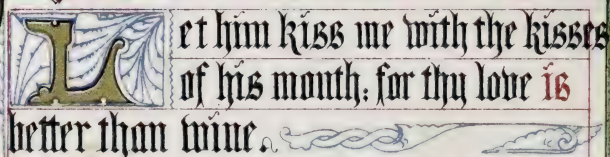 Let him kiss me with the kisses
of his mouth: for thy love is
better than wine.